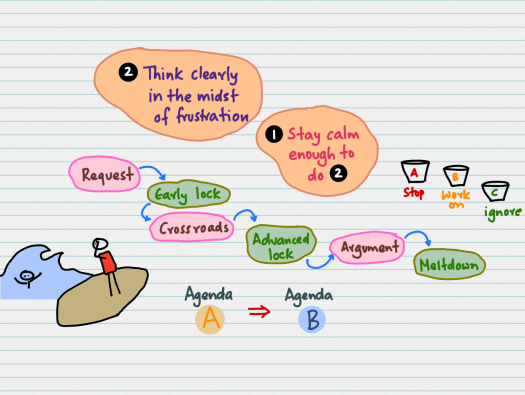 2 Think clearly
in the midst
of frustration
1 Stay calm
enough to
do 2
Request
Early lock
Crossroads
Advanced
lock
Argument
Meltdown
A
Stop
B
Work
on
C
ignore
Agenda
A
Agenda
B